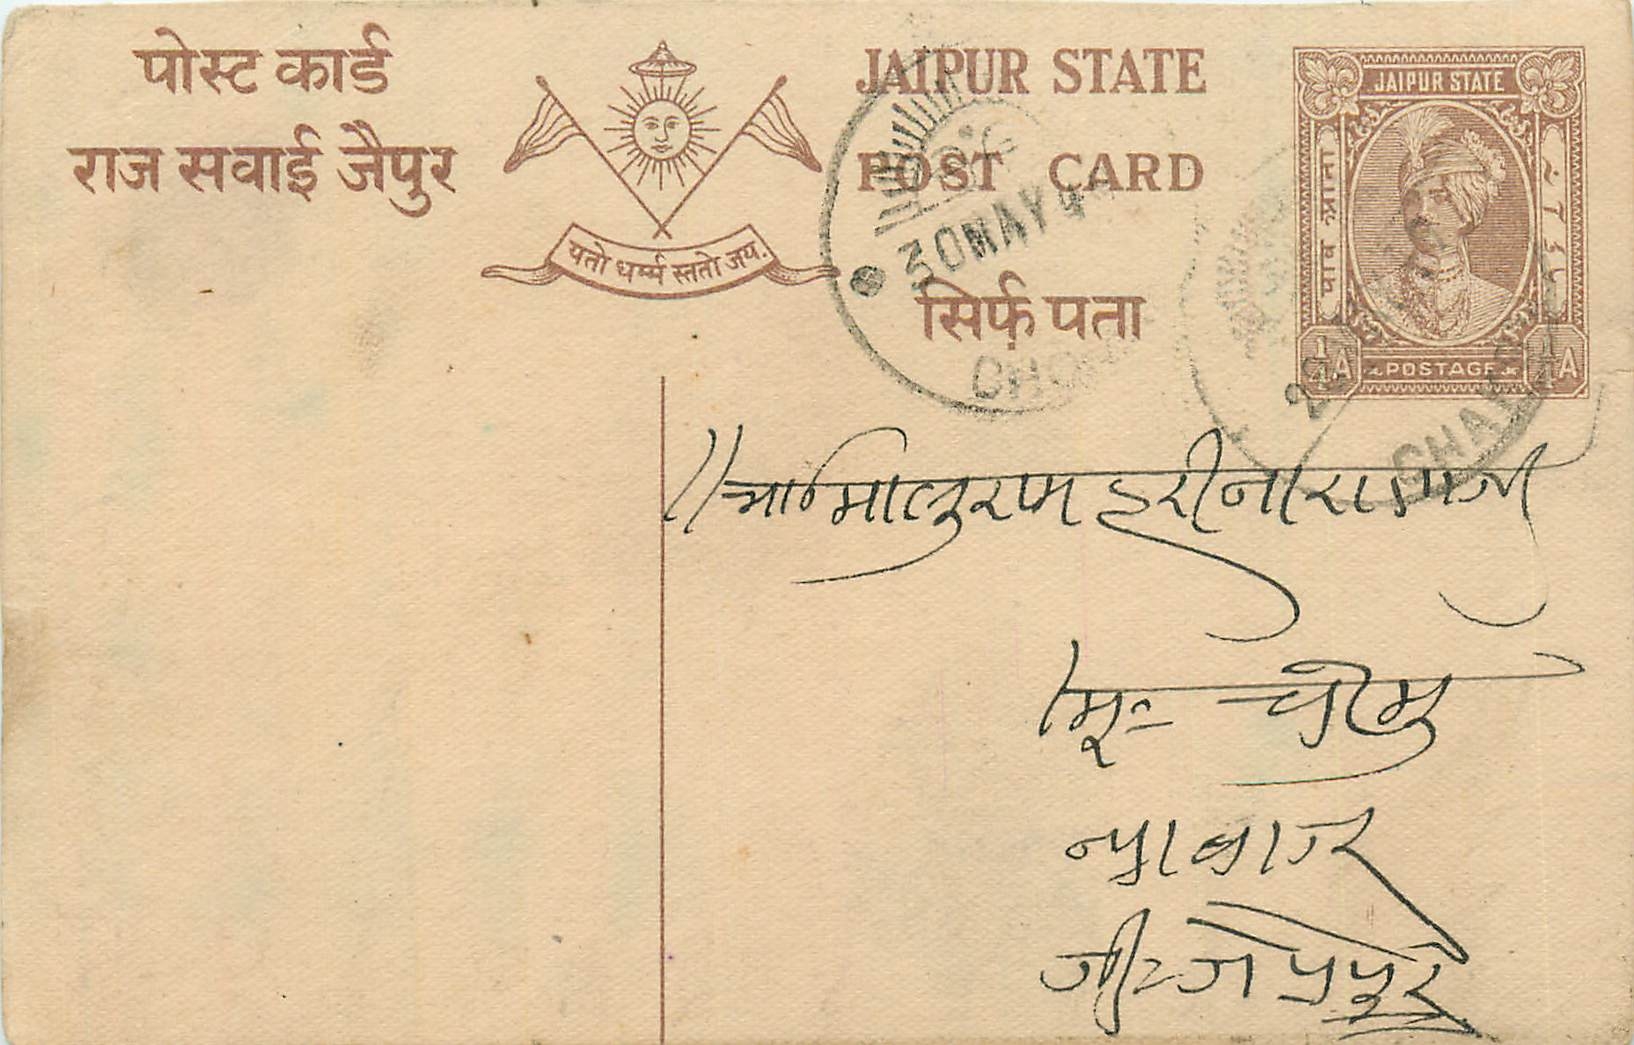 पोस्ट कार्ड
राज सवाई जैपुर
यतो धर्म्म स्ततो जय.
JAIPUR STATE
POST CARD
सिर्फ़ पता
JAIPUR STATE
पाव आना
POSTAGE
¼A
¼A
30 MAY
मालुराम हरीनारायणजी
मु॰ चौमु
जी॰ जेपुर